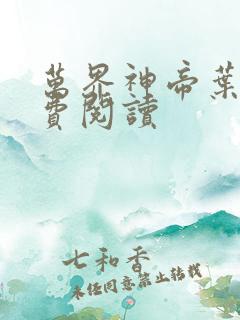 萬界神帝葉
費閱讀
七和香
未經同意禁止轉載